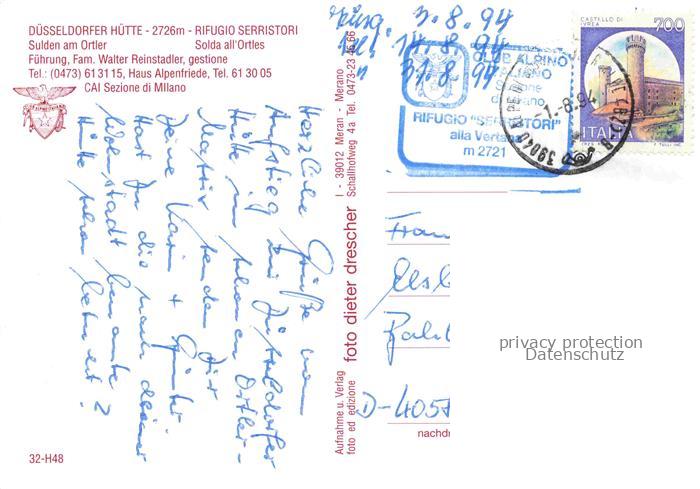 DÜSSELDORFER HÜTTE - 2726m - RIFUGIO SERRISTORI
Sulden am Ortler Solda all'Ortles
Führung, Fam. Walter Reinstadler, gestione
Tel.: (0473) 613115, Haus Alpenfriede, Tel. 61 30 05
CAI Sezione di MIlano
Herzliche Grüße vom
Aufstieg zur Düsseldorfer
Hütte im schönen Ortler-
Massiv senden Dir
Deine Karin + Günter
Hast Du die nach deiner
Wohnstadt benannte
Hütte schon betreut?
32-H48
Aufnahme u. Verlag
foto ed edizione
foto dieter drescher
I - 39012 Meran - Merano
Schallhofweg 4a Tel. 0473-23 45 66
3.8.94
14.8.94
31.8.94
CLUB ALPINO
ITALIANO
Sezione
di Milano
RIFUGIO "SERRISTORI"
alla Vertana
m 2721
-1.-8.94
39040
CASTELLO DI
IVREA
700
ITALIA
Frau
Elsb
D-4057
nachdr
privacy protection
Datenschutz